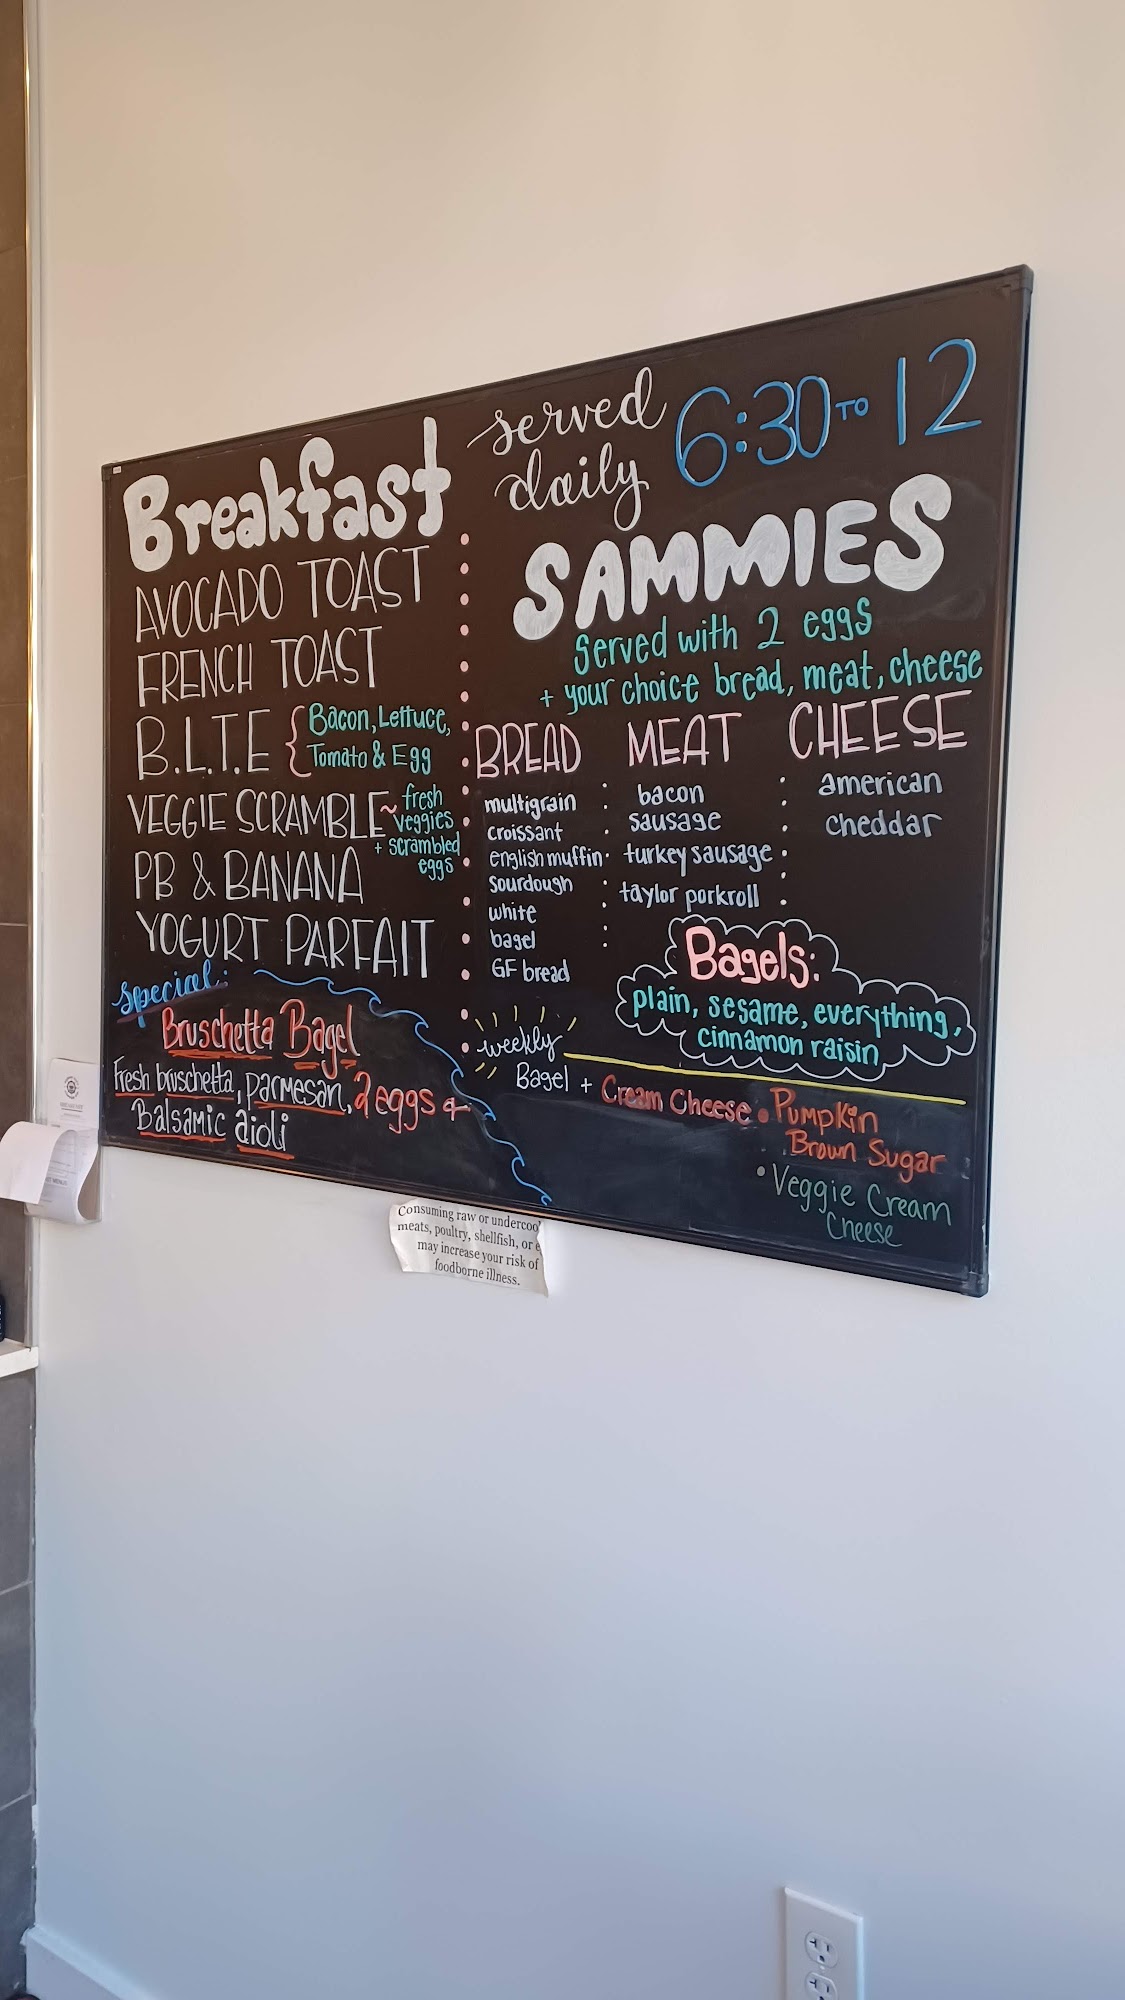 Breakfast
AVOCADO TOAST
FRENCH TOAST
B.L.T.E { Bacon, Lettuce,
Tomato & Egg
VEGGIE SCRAMBLE ~ fresh
veggies
+ scrambled
eggs
PB & BANANA
YOGURT PARFAIT
special:
Bruschetta Bagel
Fresh bruschetta, parmesan, 2 eggs +
Balsamic aioli
served
daily
6:30 TO 12
SAMMIES
served with 2 eggs
+ your choice bread, meat, cheese
BREAD
multigrain
croissant
english muffin
sourdough
white
bagel
GF bread
MEAT
bacon
sausage
turkey sausage
taylor porkroll
CHEESE
american
cheddar
Bagels:
plain, sesame, everything,
cinnamon raisin
weekly
Bagel + Cream Cheese • Pumpkin
Brown Sugar
• Veggie Cream
Cheese
Consuming raw or undercoo
meats, poultry, shellfish, or e
may increase your risk of
foodborne illness.